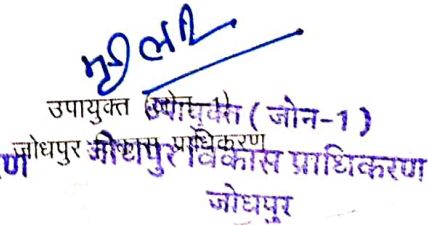 उपायुक्त (जोन-1) उपायुक्त (जोन-1)
जोधपुर विकास प्राधिकरण
ण जोधपुर विकास प्राधिकरण
जोधपुर